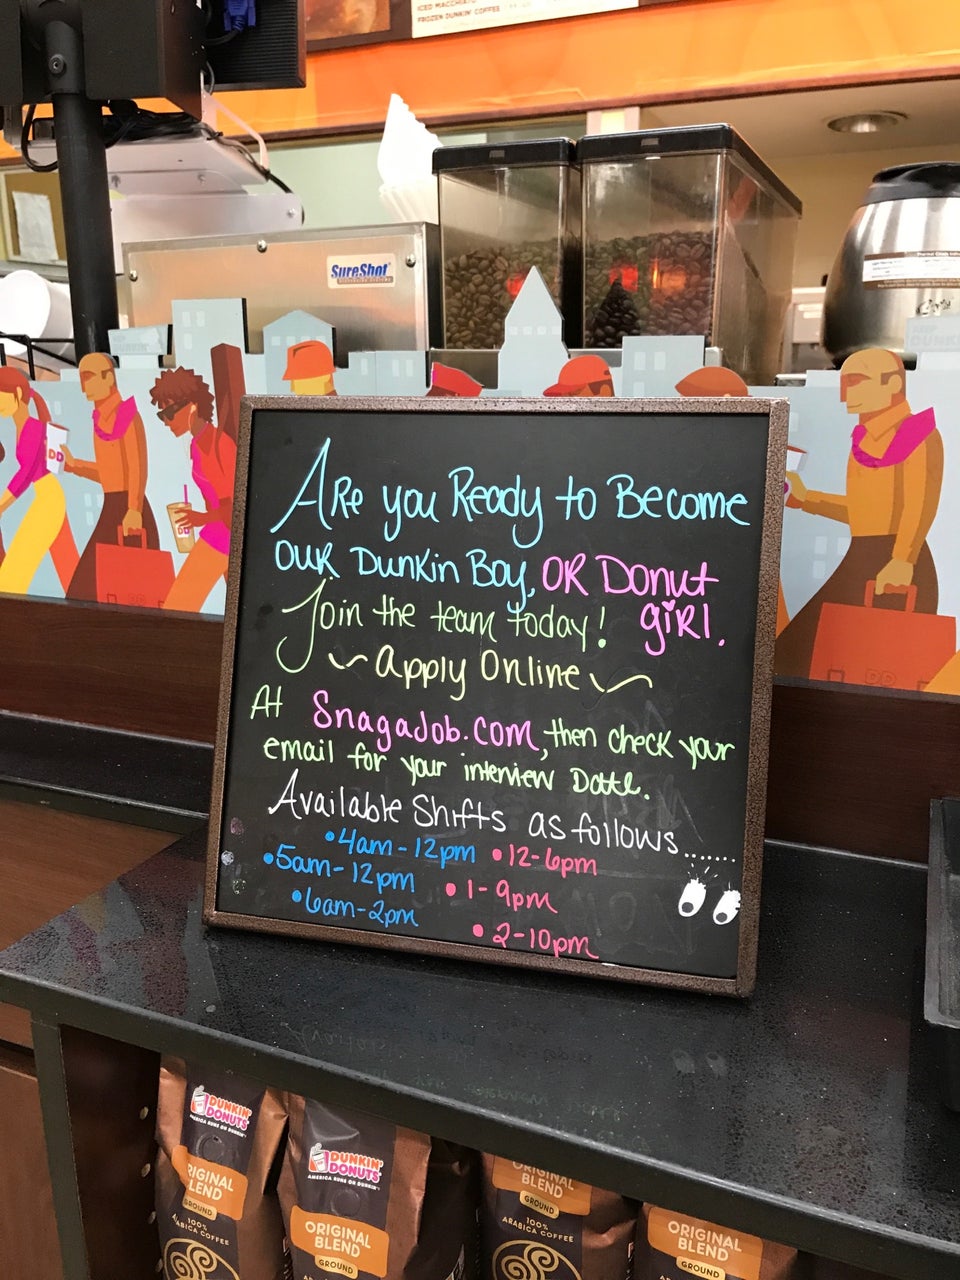 ICED MACCHIATO
FROZEN DUNKIN' COFFEE
SureShot
DD
DD
ARe you Ready to Become
ouR Dunkin Boy, OR Donut
giRl.
Join the team today!
~ Apply Online ~
At SnagaJob.com, then check your
email for your interview Date.
Available Shifts as follows........
•4am-12pm •12-6pm
•5am-12pm •1-9pm
•6am-2pm •2-10pm
DUNKIN'
DONUTS
AMERICA RUNS ON DUNKIN'
ORIGINAL
BLEND
GROUND
100%
ARABICA COFFEE
DUNKIN'
DONUTS
AMERICA RUNS ON DUNKIN'
ORIGINAL
BLEND
GROUND
100%
ARABICA COFFEE
ORIGINAL
BLEND
GROUND
100%
ARABICA COFFEE
ORIGINAL
BLEND
GROUND